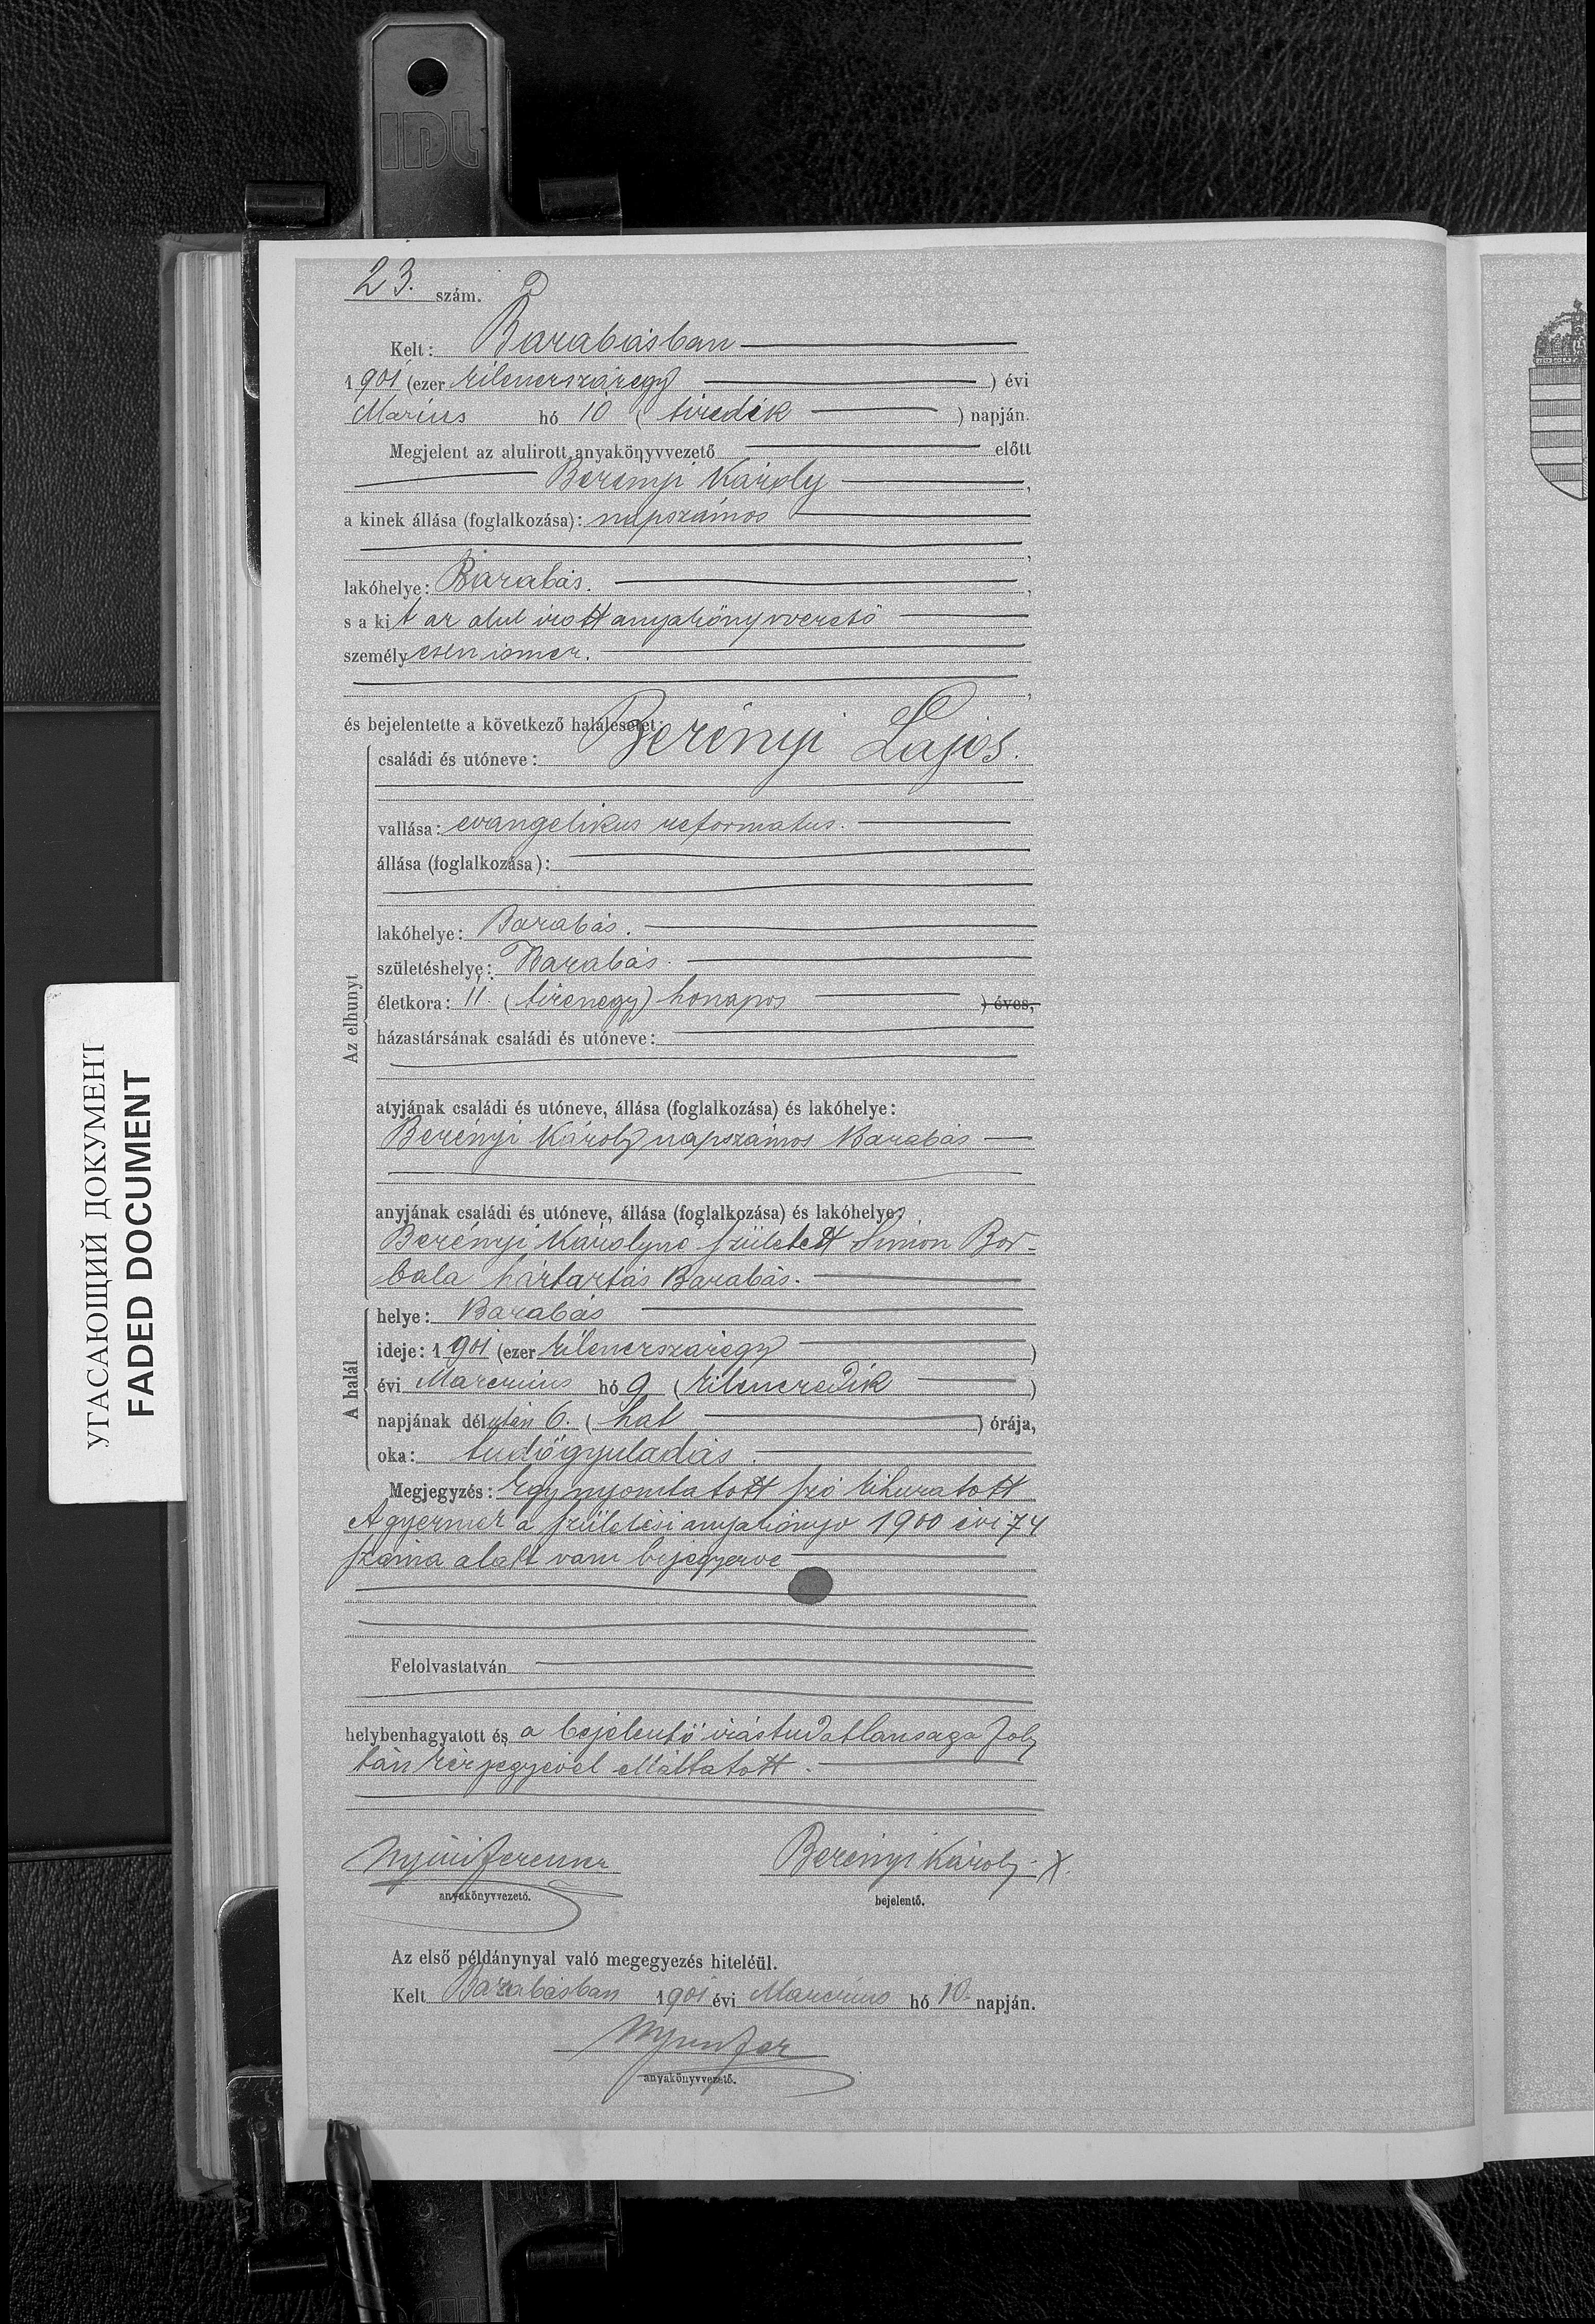 IDL
23. szám.
Kelt: Barabásban
1901 (ezer kilenczszázegy ) évi
Március hó 10 ( tizedik ) napján.
Megjelent az alulirott anyakönyvvezető előtt
Berényi Károly,
a kinek állása (foglalkozása): napszámos
,
lakóhelye: Barabás. ,
s a kit az alul irott anyakönyvvezető
személyesen ismer.
,
és bejelentette a következő halálesetet:
Az elhunyt
családi és utóneve: Berényi Lajos.
vallása: evangelikus reformatus.
állása (foglalkozása):
lakóhelye: Barabás.
születéshelye: Barabás.
életkora: 11. (tizenegy) honapos ) éves,
házastársának családi és utóneve:
atyjának családi és utóneve, állása (foglalkozása) és lakóhelye:
Berényi Károly napszámos Barabás
anyjának családi és utóneve, állása (foglalkozása) és lakóhelye:
Berényi Károlyné született Simon Bor-
bala háztartás Barabás.
A halál
helye: Barabás
ideje: 1901 (ezer kilenczszázegy )
évi Marczius hó 9 ( kilenczedik )
napjának délután 6. ( hat ) órája,
oka: tüdőgyuladás.
Megjegyzés: Egy nyomtatott szó kihuzatott
A gyermek a születési anyakönyv 1900 évi 74
száma alatt van bejegyezve
Felolvastatván
helybenhagyatott és a bejelentő irástudatlansaga foly
tán kézjegyével elláttatott.
Berényi Károly X.
anyakönyvvezető.
bejelentő.
Az első példánynyal való megegyezés hiteléül.
Kelt Barabásban 1901 évi Marczius hó 10. napján.
anyakönyvvezető.
УГАСАЮЩИЙ ДОКУМЕНТ
FADED DOCUMENT